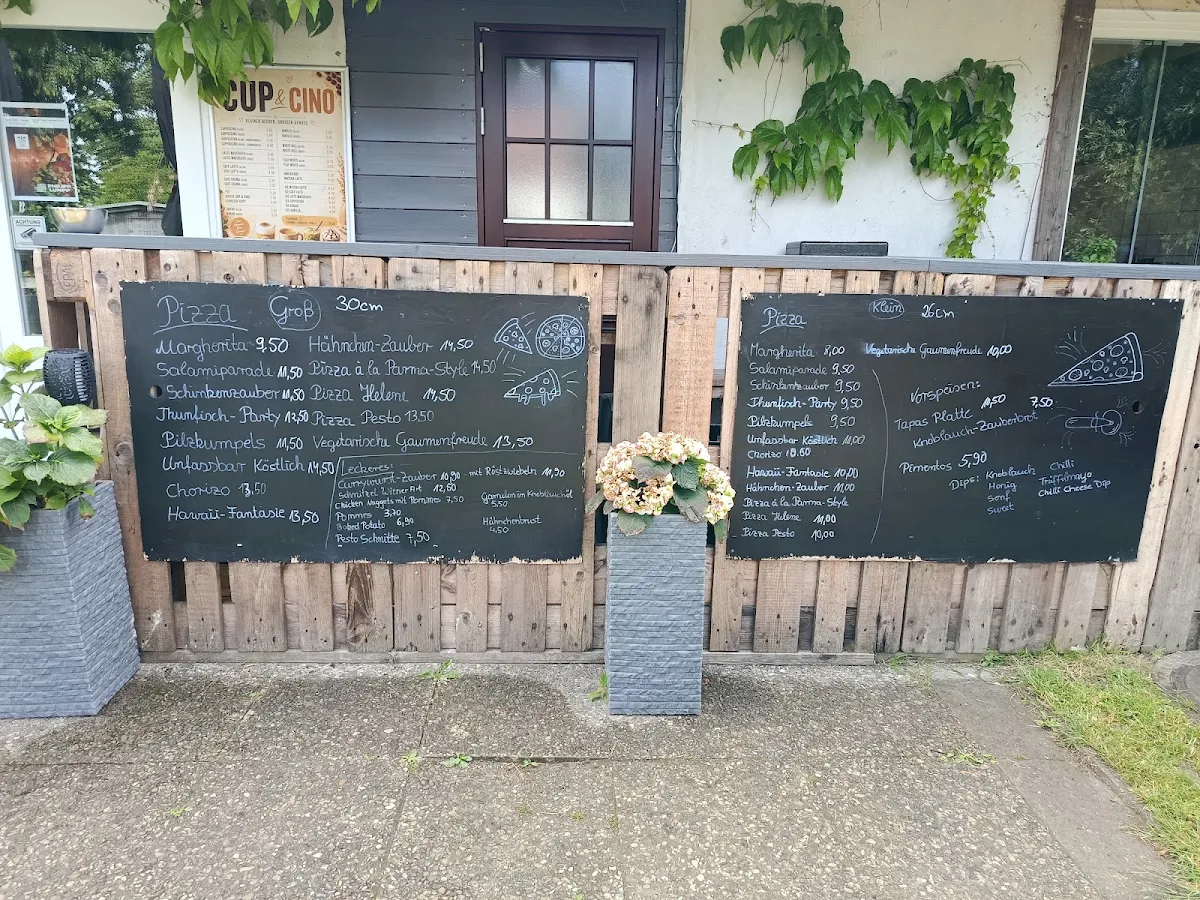 CUP & CINO
ACHTUNG
Pizza Groß 30cm
Margherita 9,50
Salamiparade 11,50
Schinkenzauber 11,50
Thunfisch-Party 13,50
Pilzkumpels 11,50
Unfassbar Köstlich 14,50
Chorizo 13,50
Hawaii-Fantasie 13,50
Hähnchen-Zauber 14,50
Pizza à la Parma-Style 14,50
Pizza Helene 14,50
Pizza Pesto 13,50
Vegetarische Gaumenfreude 13,50
Leckeres:
Currywurst-Zauber 10,90 - mit Röstzwiebeln 11,90
Schnitzel Wiener Art 12,60
Chicken Nuggets mit Pommes 7,50
Pommes 3,70
Baked Potato 6,90
Pesto Schnitte 7,50
Garnelen im Knoblauchöl
5,50
Hähnchenbrust
4,50
Pizza Klein 26cm
Margherita 8,00
Salamiparade 9,50
Schinkenzauber 9,50
Thunfisch-Party 9,50
Pilzkumpels 9,50
Unfassbar Köstlich 11,00
Chorizo
Hawaii-Fantasie 10,00
Hähnchen-Zauber 11,00
Pizza à la Parma-Style
Pizza Helene 11,00
Pizza Pesto 10,00
Vegetarische Gaumenfreude 10,00
Vorspeisen:
Tapas Platte 11,50
Knoblauch-Zauberbrot 7,50
Pimentos 5,90
Dips: Knoblauch Chilli
Honig Trüffelmayo
Senf Chilli Cheese Dip
Sweet